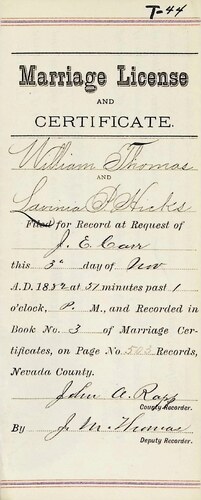 T-44
Marriage License
AND
CERTIFICATE.
William Thomas
AND
Lavinia P. Hicks
Filed for Record at Request of
J. E. Carr
this 3d day of Nov
A.D. 1882 at 51 minutes past 1
o'clock, P. M., and Recorded in
Book No. 3 of Marriage Cer-
tificates, on Page No 503 Records,
Nevada County.
John A. Rapp
County Recorder.
By J. M. Thomas
Deputy Recorder.